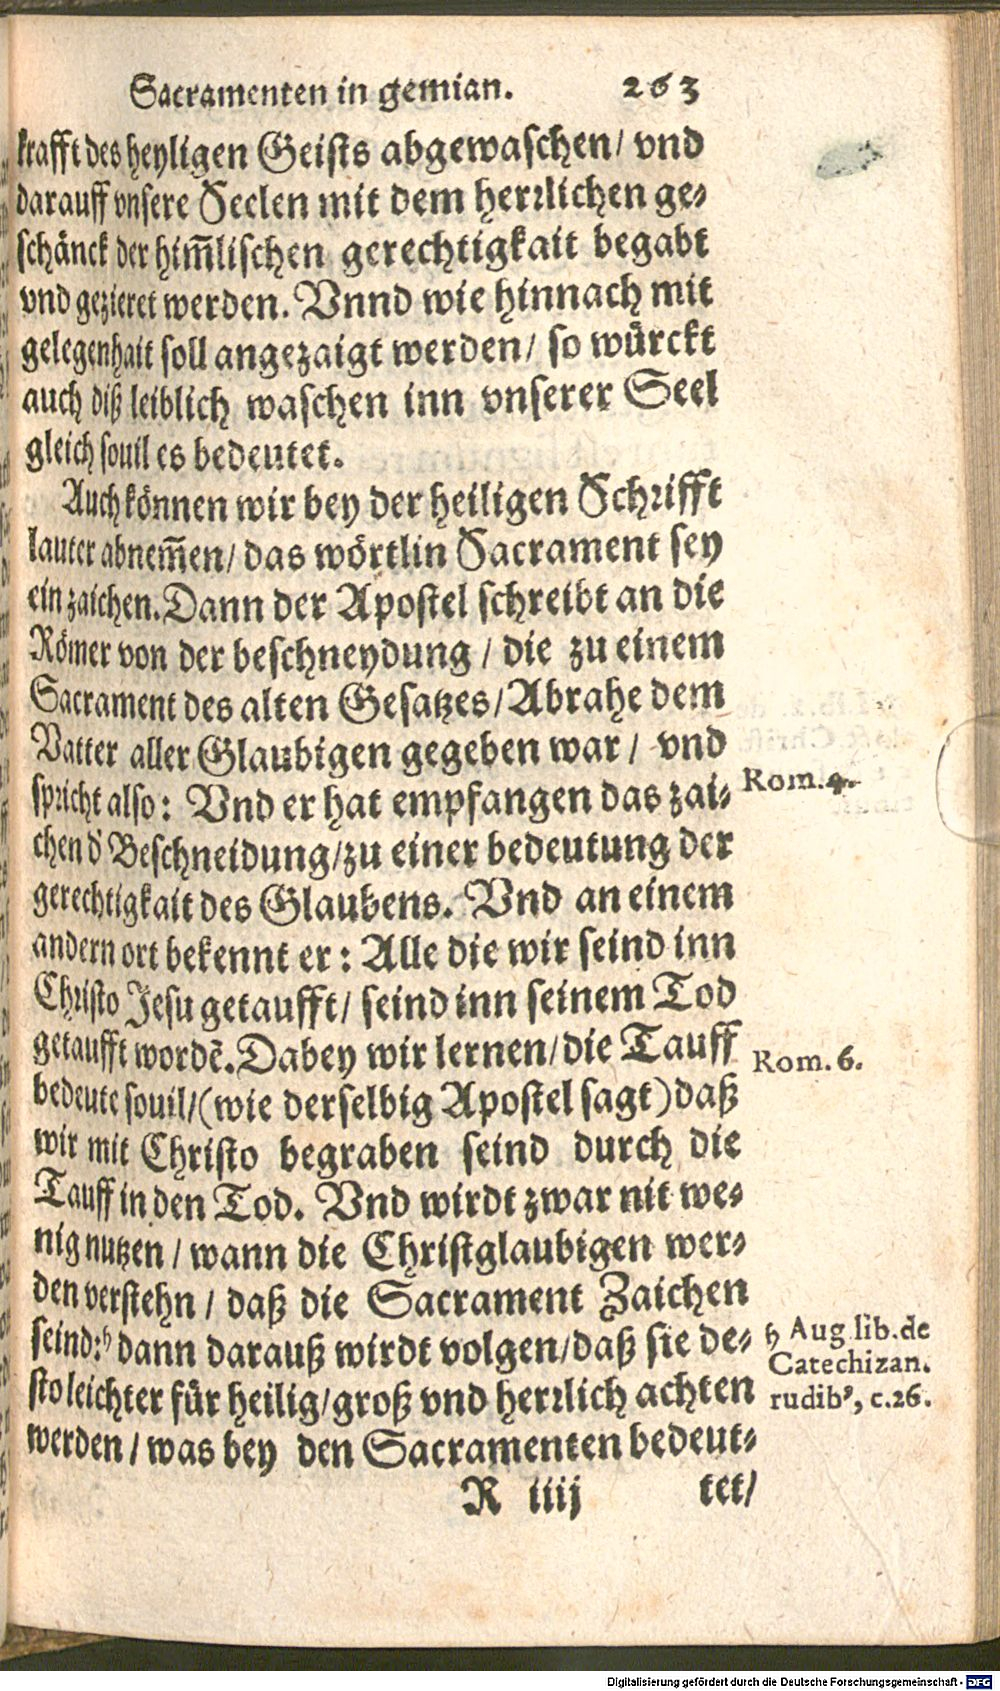 Sacramenten in gemian. 263
krafft des heyligen Geists abgewaschen/ vnd
darauff vnsere Seelen mit dem herrlichen ge⸗
schänck der him̃lischen gerechtigkait begabt
vnd gezieret werden. Vnnd wie hinnach mit
gelegenhait soll angezaigt werden/ so würckt
auch diß leiblich waschen inn vnserer Seel
gleich souil es bedeutet.
Auch können wir bey der heiligen Schrifft
lauter abnem̃en/ das wörtlin Sacrament sey
ein zaichen. Dann der Apostel schreibt an die
Römer von der beschneydung / die zu einem
Sacrament des alten Gesatzes/ Abrahe dem
Vatter aller Glaubigen gegeben war / vnd
spricht also: Vnd er hat empfangen das zai⸗
Rom.4.
chen d' Beschneidung/zu einer bedeutung der
gerechtigkait des Glaubens. Vnd an einem
andern ort bekennt er: Alle die wir seind inn
Christo Jesu getaufft/ seind inn seinem Tod
getaufft wordẽ. Dabey wir lernen/die Tauff
Rom. 6.
bedeute souil/(wie derselbig Apostel sagt) daß
wir mit Christo begraben seind durch die
Tauff in den Tod. Vnd wirdt zwar nit we⸗
nig nutzen / wann die Christglaubigen wer⸗
den verstehn / daß die Sacrament Zaichen
seind:ʰ dann darauß wirdt volgen/daß sie de⸗
h Aug lib.de
Catechizan.
rudibꝰ, c.26.
sto leichter für heilig/groß vnd herrlich achten
werden / was bey den Sacramenten bedeut⸗
R iiij tet/
Digitalisierung gefördert durch die Deutsche Forschungsgemeinschaft - DFG